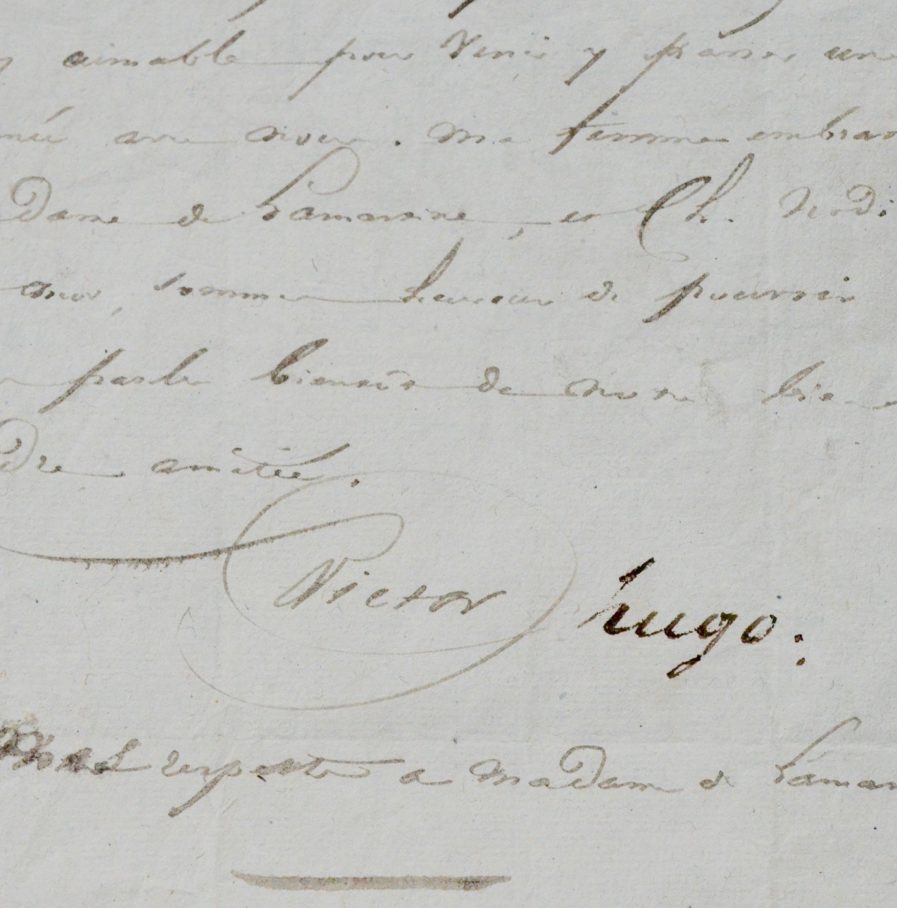 aimable pour venir y passer une
née avec nous. Ma femme embras
Dame de Lamartine, et Ch. Nodi
moi, sommes heureux de pouvoir
parler bientôt de notre bien
dre amitié.
Victor hugo.
respects à Madame de Lamar